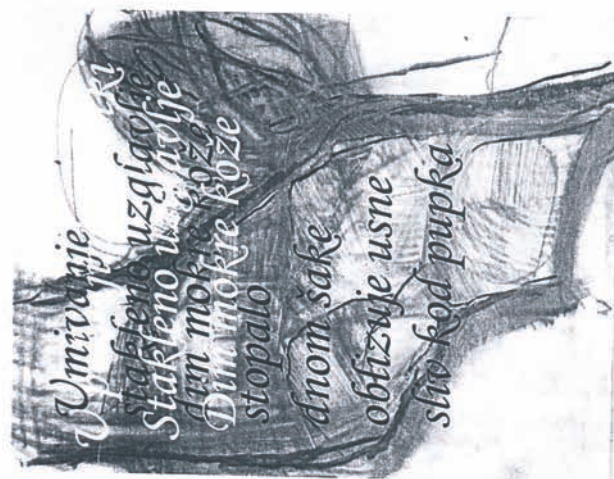 Umivanje
stakleno uzglavlje
Stakleno uzglavlje
dim mokre kože
Dim mokre kože
stopalo
dnom šake
oblizuje usne
sliv kod pupka